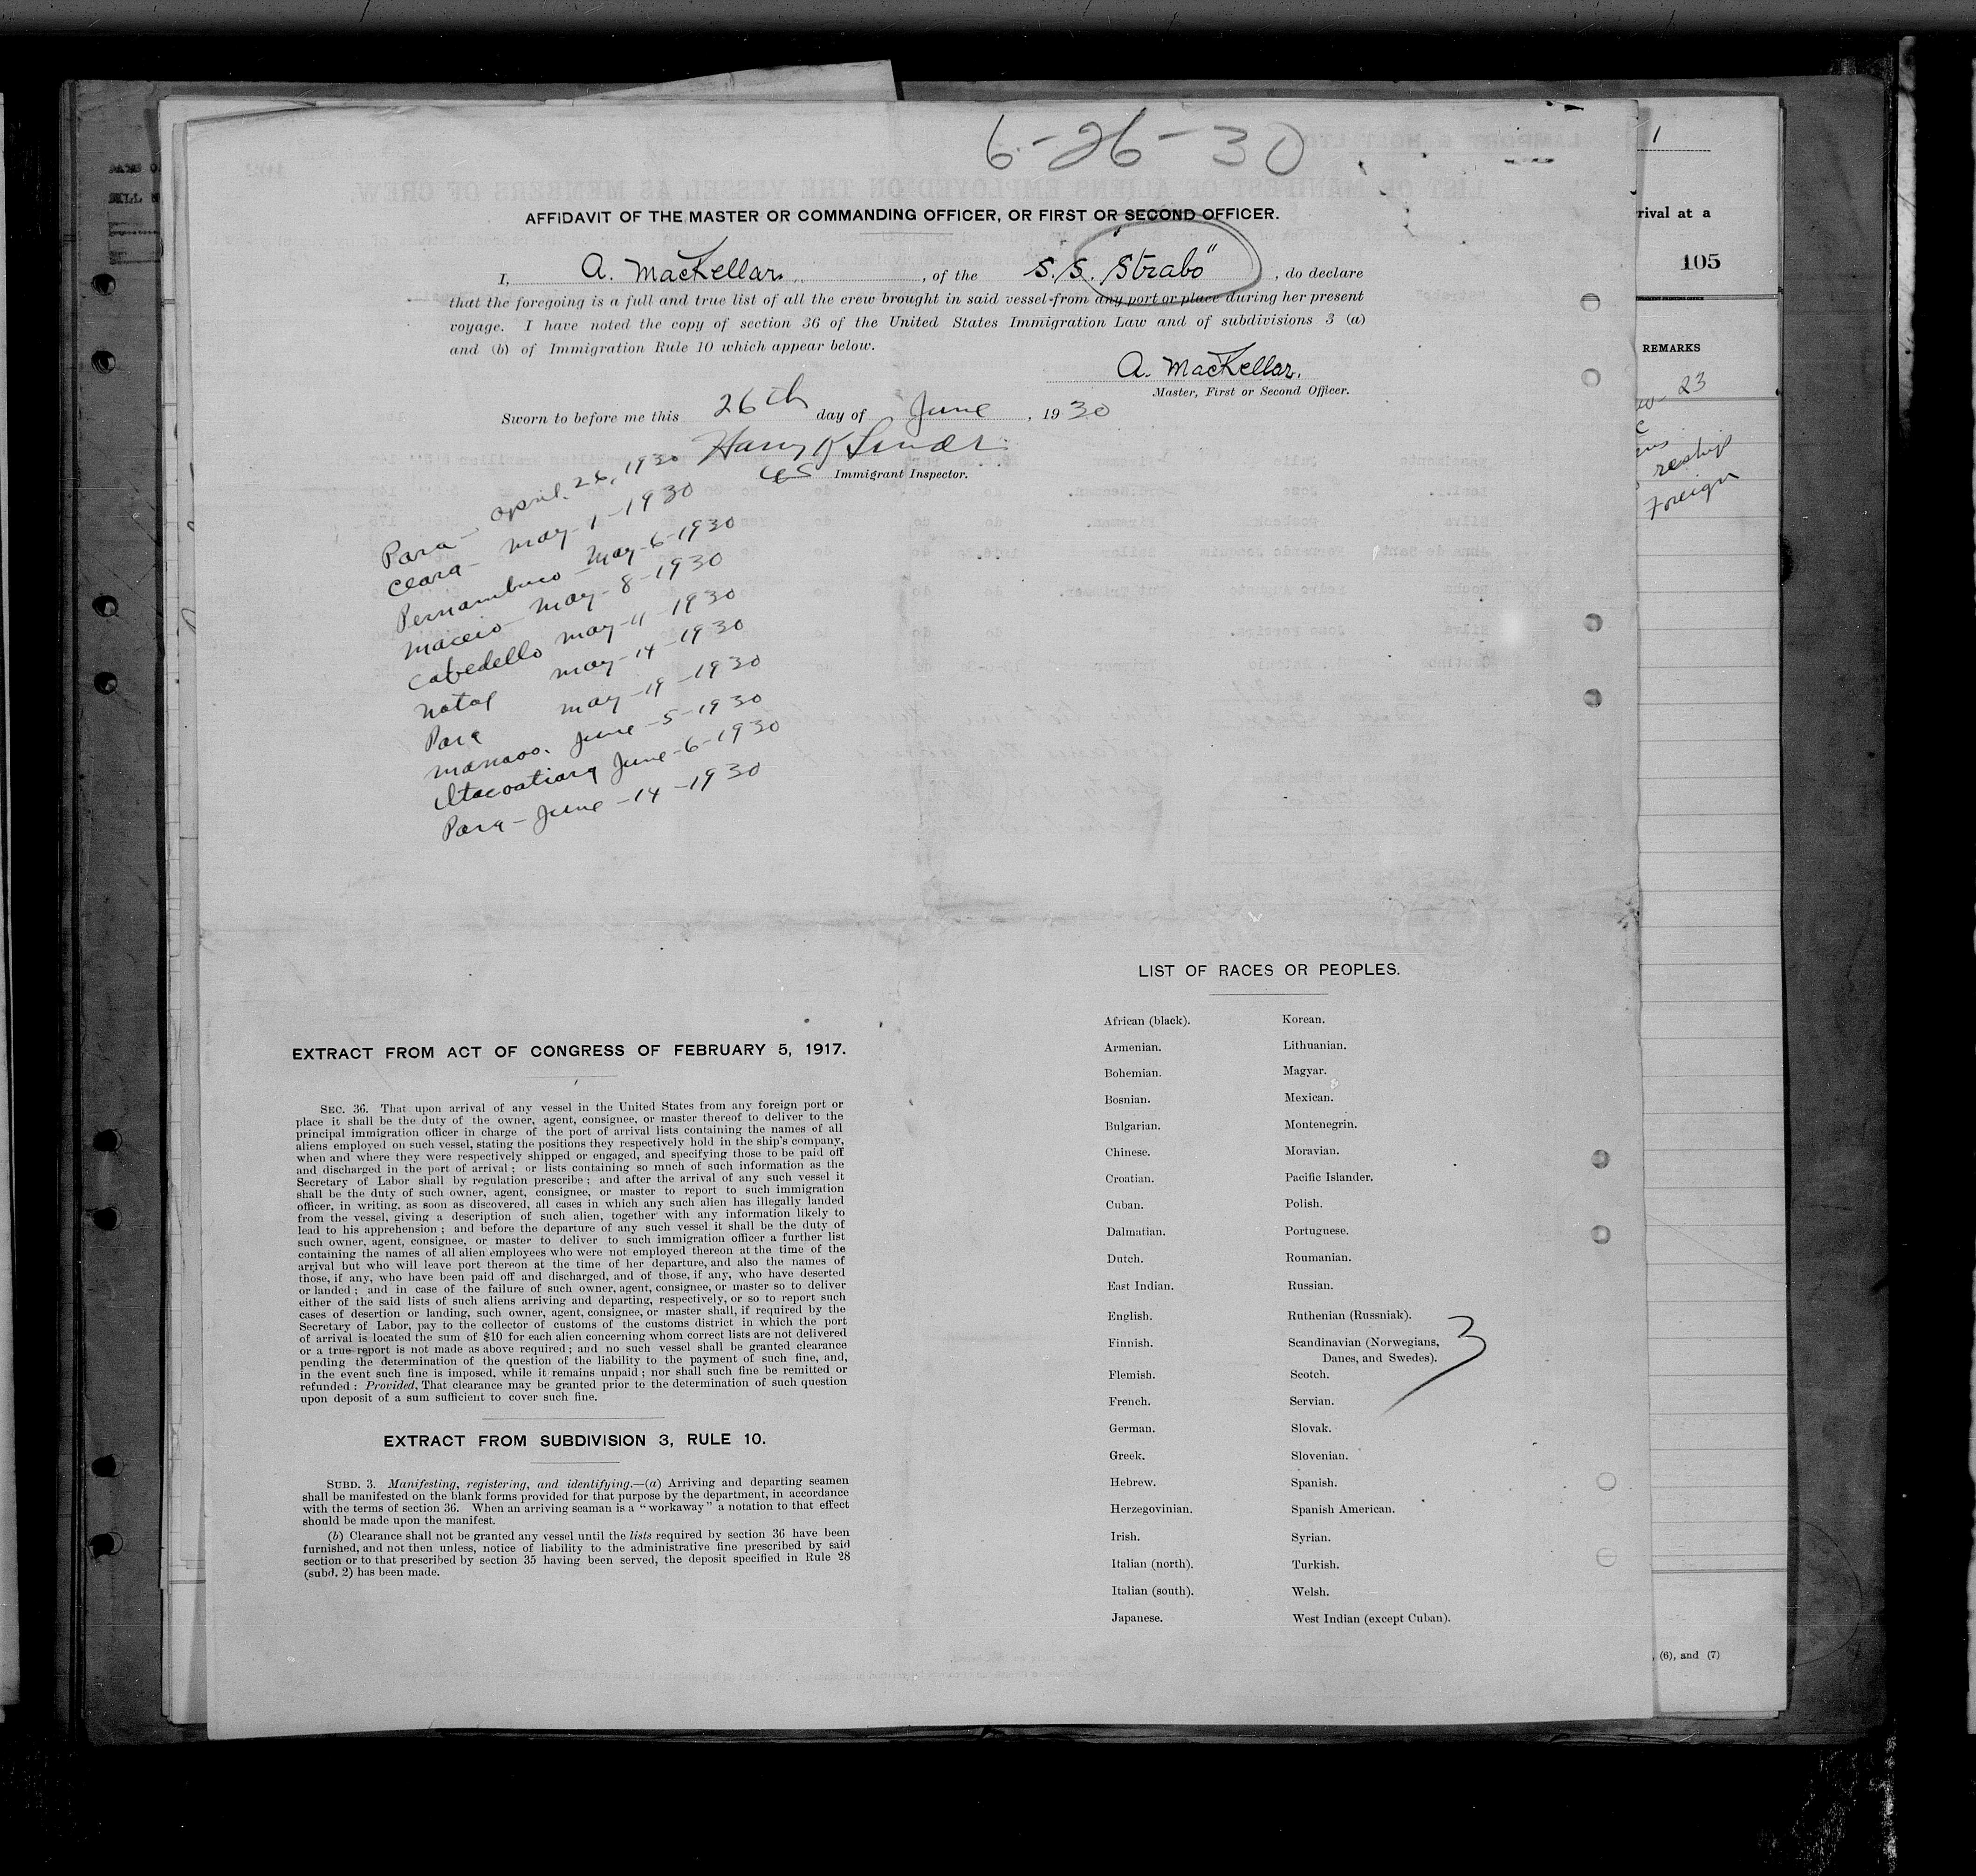 6-26-30
AFFIDAVIT OF THE MASTER OR COMMANDING OFFICER, OR FIRST OR SECOND OFFICER.
I, A. MacKellar, of the S.S. "Strabo", do declare
that the foregoing is a full and true list of all the crew brought in said vessel from any port or place during her present
voyage. I have noted the copy of section 36 of the United States Immigration Law and of subdivisions 3 (a)
and (b) of Immigration Rule 10 which appear below.
A. MacKellar.
Master, First or Second Officer.
Sworn to before me this 26th day of June, 1930
Harry K
US Immigrant Inspector.
Para - April. 26, 1930
Ceara - May - 1 - 1930
Pernambuco - May - 6 - 1930
Maceio - May - 8 - 1930
Cabedello May - 11 - 1930
Natal May - 14 - 1930
Para May - 19 - 1930
Manaos. June - 5 - 1930
Itacoatiara June - 6 - 1930
Para - June - 14 - 1930
EXTRACT FROM ACT OF CONGRESS OF FEBRUARY 5, 1917.
SEC. 36. That upon arrival of any vessel in the United States from any foreign port or
place it shall be the duty of the owner, agent, consignee, or master thereof to deliver to the
principal immigration officer in charge of the port of arrival lists containing the names of all
aliens employed on such vessel, stating the positions they respectively hold in the ship's company,
when and where they were respectively shipped or engaged, and specifying those to be paid off
and discharged in the port of arrival; or lists containing so much of such information as the
Secretary of Labor shall by regulation prescribe; and after the arrival of any such vessel it
shall be the duty of such owner, agent, consignee, or master to report to such immigration
officer, in writing, as soon as discovered, all cases in which any such alien has illegally landed
from the vessel, giving a description of such alien, together with any information likely to
lead to his apprehension; and before the departure of any such vessel it shall be the duty of
such owner, agent, consignee, or master to deliver to such immigration officer a further list
containing the names of all alien employees who were not employed thereon at the time of the
arrival but who will leave port thereon at the time of her departure, and also the names of
those, if any, who have been paid off and discharged, and of those, if any, who have deserted
or landed; and in case of the failure of such owner, agent, consignee, or master so to deliver
either of the said lists of such aliens arriving and departing, respectively, or so to report such
cases of desertion or landing, such owner, agent, consignee, or master shall, if required by the
Secretary of Labor, pay to the collector of customs of the customs district in which the port
of arrival is located the sum of $10 for each alien concerning whom correct lists are not delivered
or a true report is not made as above required; and no such vessel shall be granted clearance
pending the determination of the question of the liability to the payment of such fine, and,
in the event such fine is imposed, while it remains unpaid; nor shall such fine be remitted or
refunded: Provided, That clearance may be granted prior to the determination of such question
upon deposit of a sum sufficient to cover such fine.
EXTRACT FROM SUBDIVISION 3, RULE 10.
SUBD. 3. Manifesting, registering, and identifying.—(a) Arriving and departing seamen
shall be manifested on the blank forms provided for that purpose by the department, in accordance
with the terms of section 36. When an arriving seaman is a "workaway" a notation to that effect
should be made upon the manifest.
(b) Clearance shall not be granted any vessel until the lists required by section 36 have been
furnished, and not then unless, notice of liability to the administrative fine prescribed by said
section or to that prescribed by section 35 having been served, the deposit specified in Rule 28
(subd. 2) has been made.
LIST OF RACES OR PEOPLES.
African (black). Korean.
Armenian. Lithuanian.
Bohemian. Magyar.
Bosnian. Mexican.
Bulgarian. Montenegrin.
Chinese. Moravian.
Croatian. Pacific Islander.
Cuban. Polish.
Dalmatian. Portuguese.
Dutch. Roumanian.
East Indian. Russian.
English. Ruthenian (Russniak).
Finnish. Scandinavian (Norwegians,
Danes, and Swedes).
3
Flemish. Scotch.
French. Servian.
German. Slovak.
Greek. Slovenian.
Hebrew. Spanish.
Herzegovinian. Spanish American.
Irish. Syrian.
Italian (north). Turkish.
Italian (south). Welsh.
Japanese. West Indian (except Cuban).
1
rival at a
105
REMARKS
23
reship
Foreign
, (6), and (7)